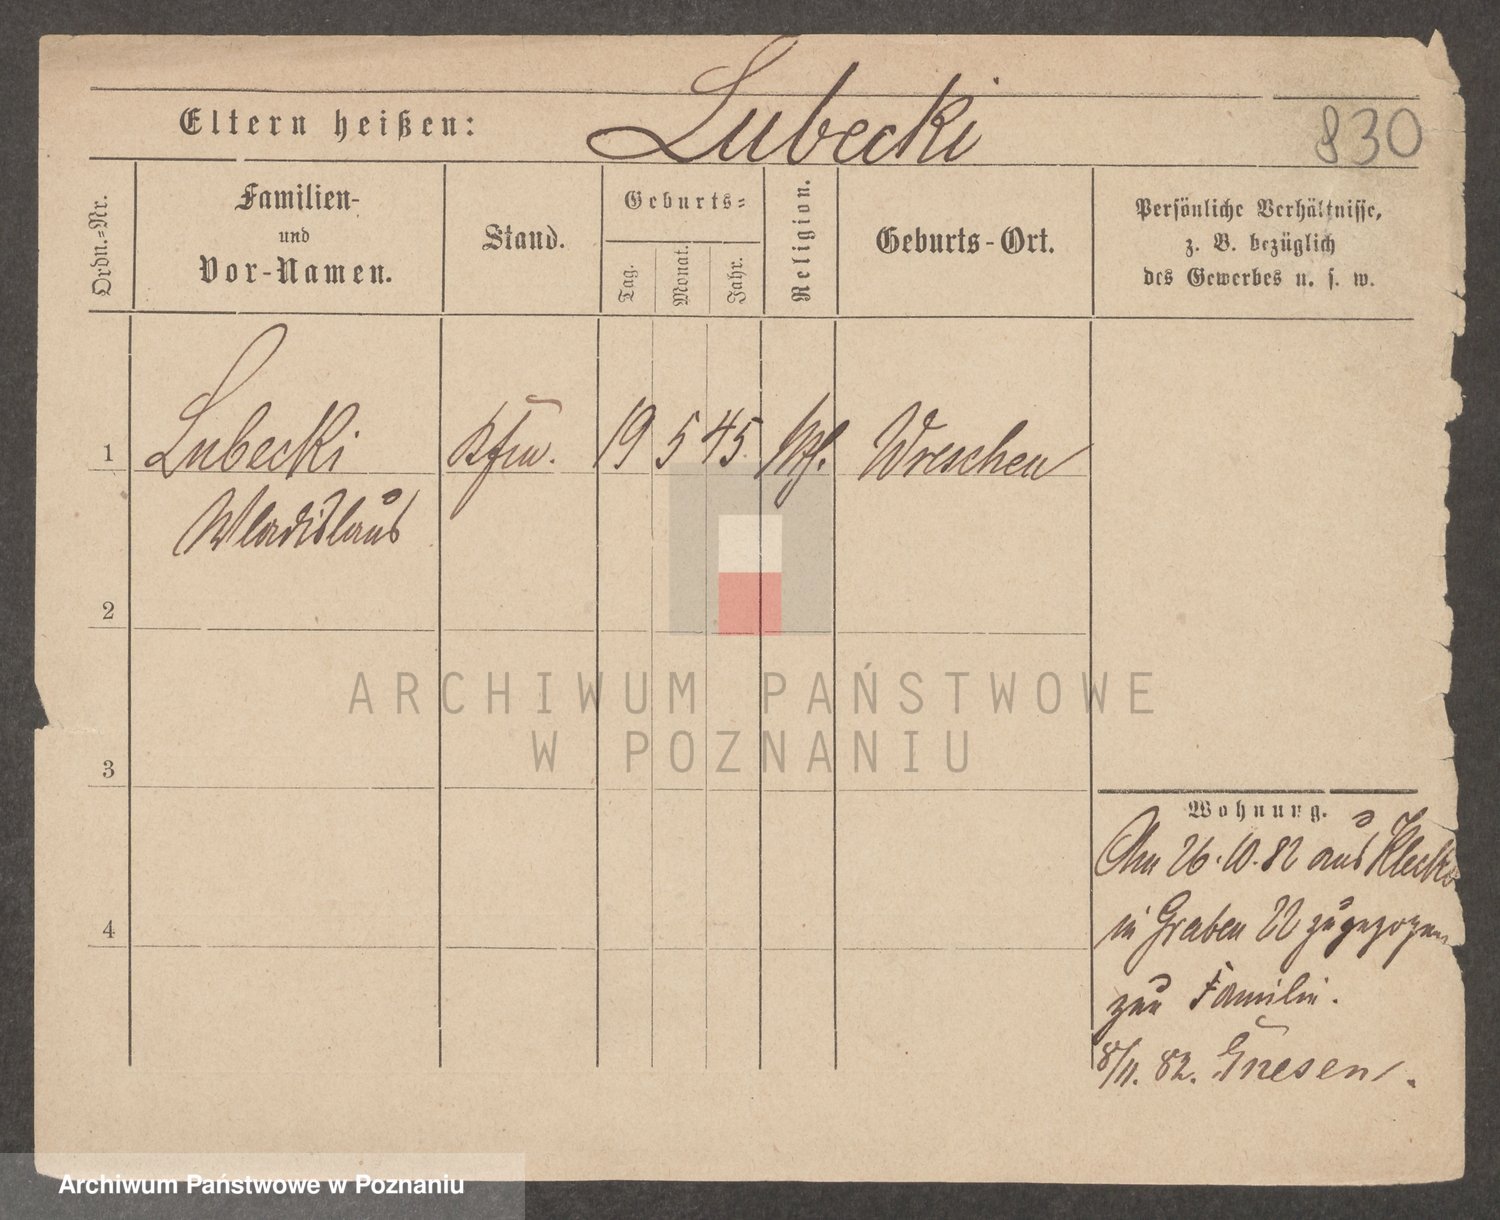 Eltern heißen: Lubecki
830
Ordn.-Nr.
Familien-
und
Vor-Namen.
Stand.
Geburts-
Tag.
Monat.
Jahr.
Religion.
Geburts-Ort.
Persönliche Verhältnisse,
z. B. bezüglich
des Gewerbes u. s. w.
1 Lubecki Kfm. 19 5 45 Wreschen
Wladislaus
2
ARCHIWUM PAŃSTWOWE
W POZNANIU
3
Wohnung.
Am 26.10.82 aus Klecko
in Graben 22 zugezogen
zur Familie.
4
8/11. 82. Gnesen.
Archiwum Państwowe w Poznaniu